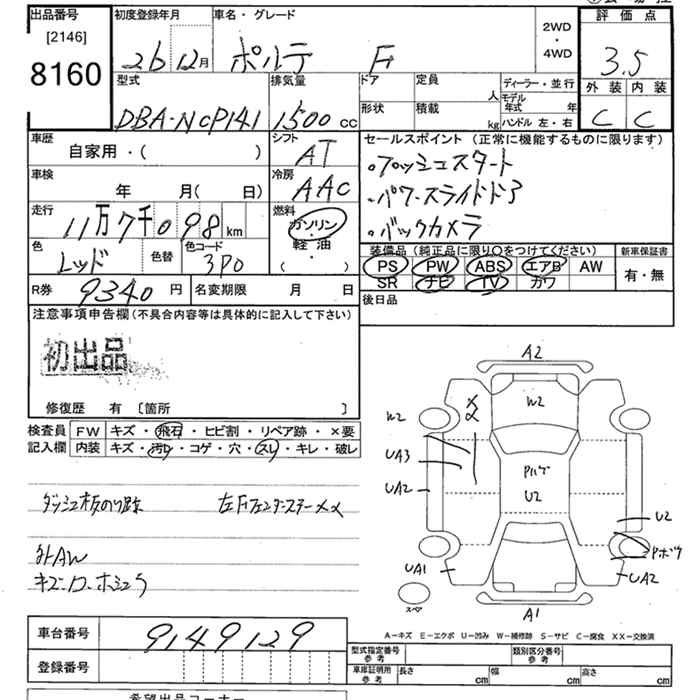 出品番号
[2146]
8160
初度登録年月
26 12月
車名・グレード
ポルテ F
2WD
・
4WD
評価点
3.5
外装 内装
C C
型式
DBA-NCP141
排気量
1500 CC
ドア
定員
人
形状
積載
kg
ディーラー・並行
モデル年式 年
ハンドル 左・右
車歴
自家用・( )
シフト
AT
車検
年 月( 日)
冷房
AAC
走行
11万7千098 km
燃料
ガソリン
・
軽油
( )
色
レッド
色替
色コード
3P0
R券 9340 円
名変期限 月 日
セールスポイント (正常に機能するものに限ります)
・プッシュスタート
・パワースライドドア
・バックカメラ
装備品 (純正品に限り○をつけてください)
PS PW ABS エアB AW
SR ナビ TV カワ
新車保証書
有・無
後日品
注意事項申告欄(不具合内容等は具体的に記入して下さい)
初出品
修復歴 有 [箇所 ]
検査員記入欄
FW キズ・飛石・ヒビ割・リペア跡・×要
内装 キズ・汚レ・コゲ・穴・スレ・キレ・破レ
ダッシュ板のり跡 左Fフェンダーステー××
外AW
キズ・
A2
W2
XX
W2
UA3
UA2
Pハゲ
U2
U2
UA1
UA2
A1
スペア
A-キズ E-エクボ U-凹み W-補修跡 S-サビ C-腐食 XX-交換済
車台番号 9149129
登録番号
型式指定番号
参考
類別区分番号
参考
車庫証明用
参考
長さ cm 幅 cm 高さ cm
希望出品コーナー